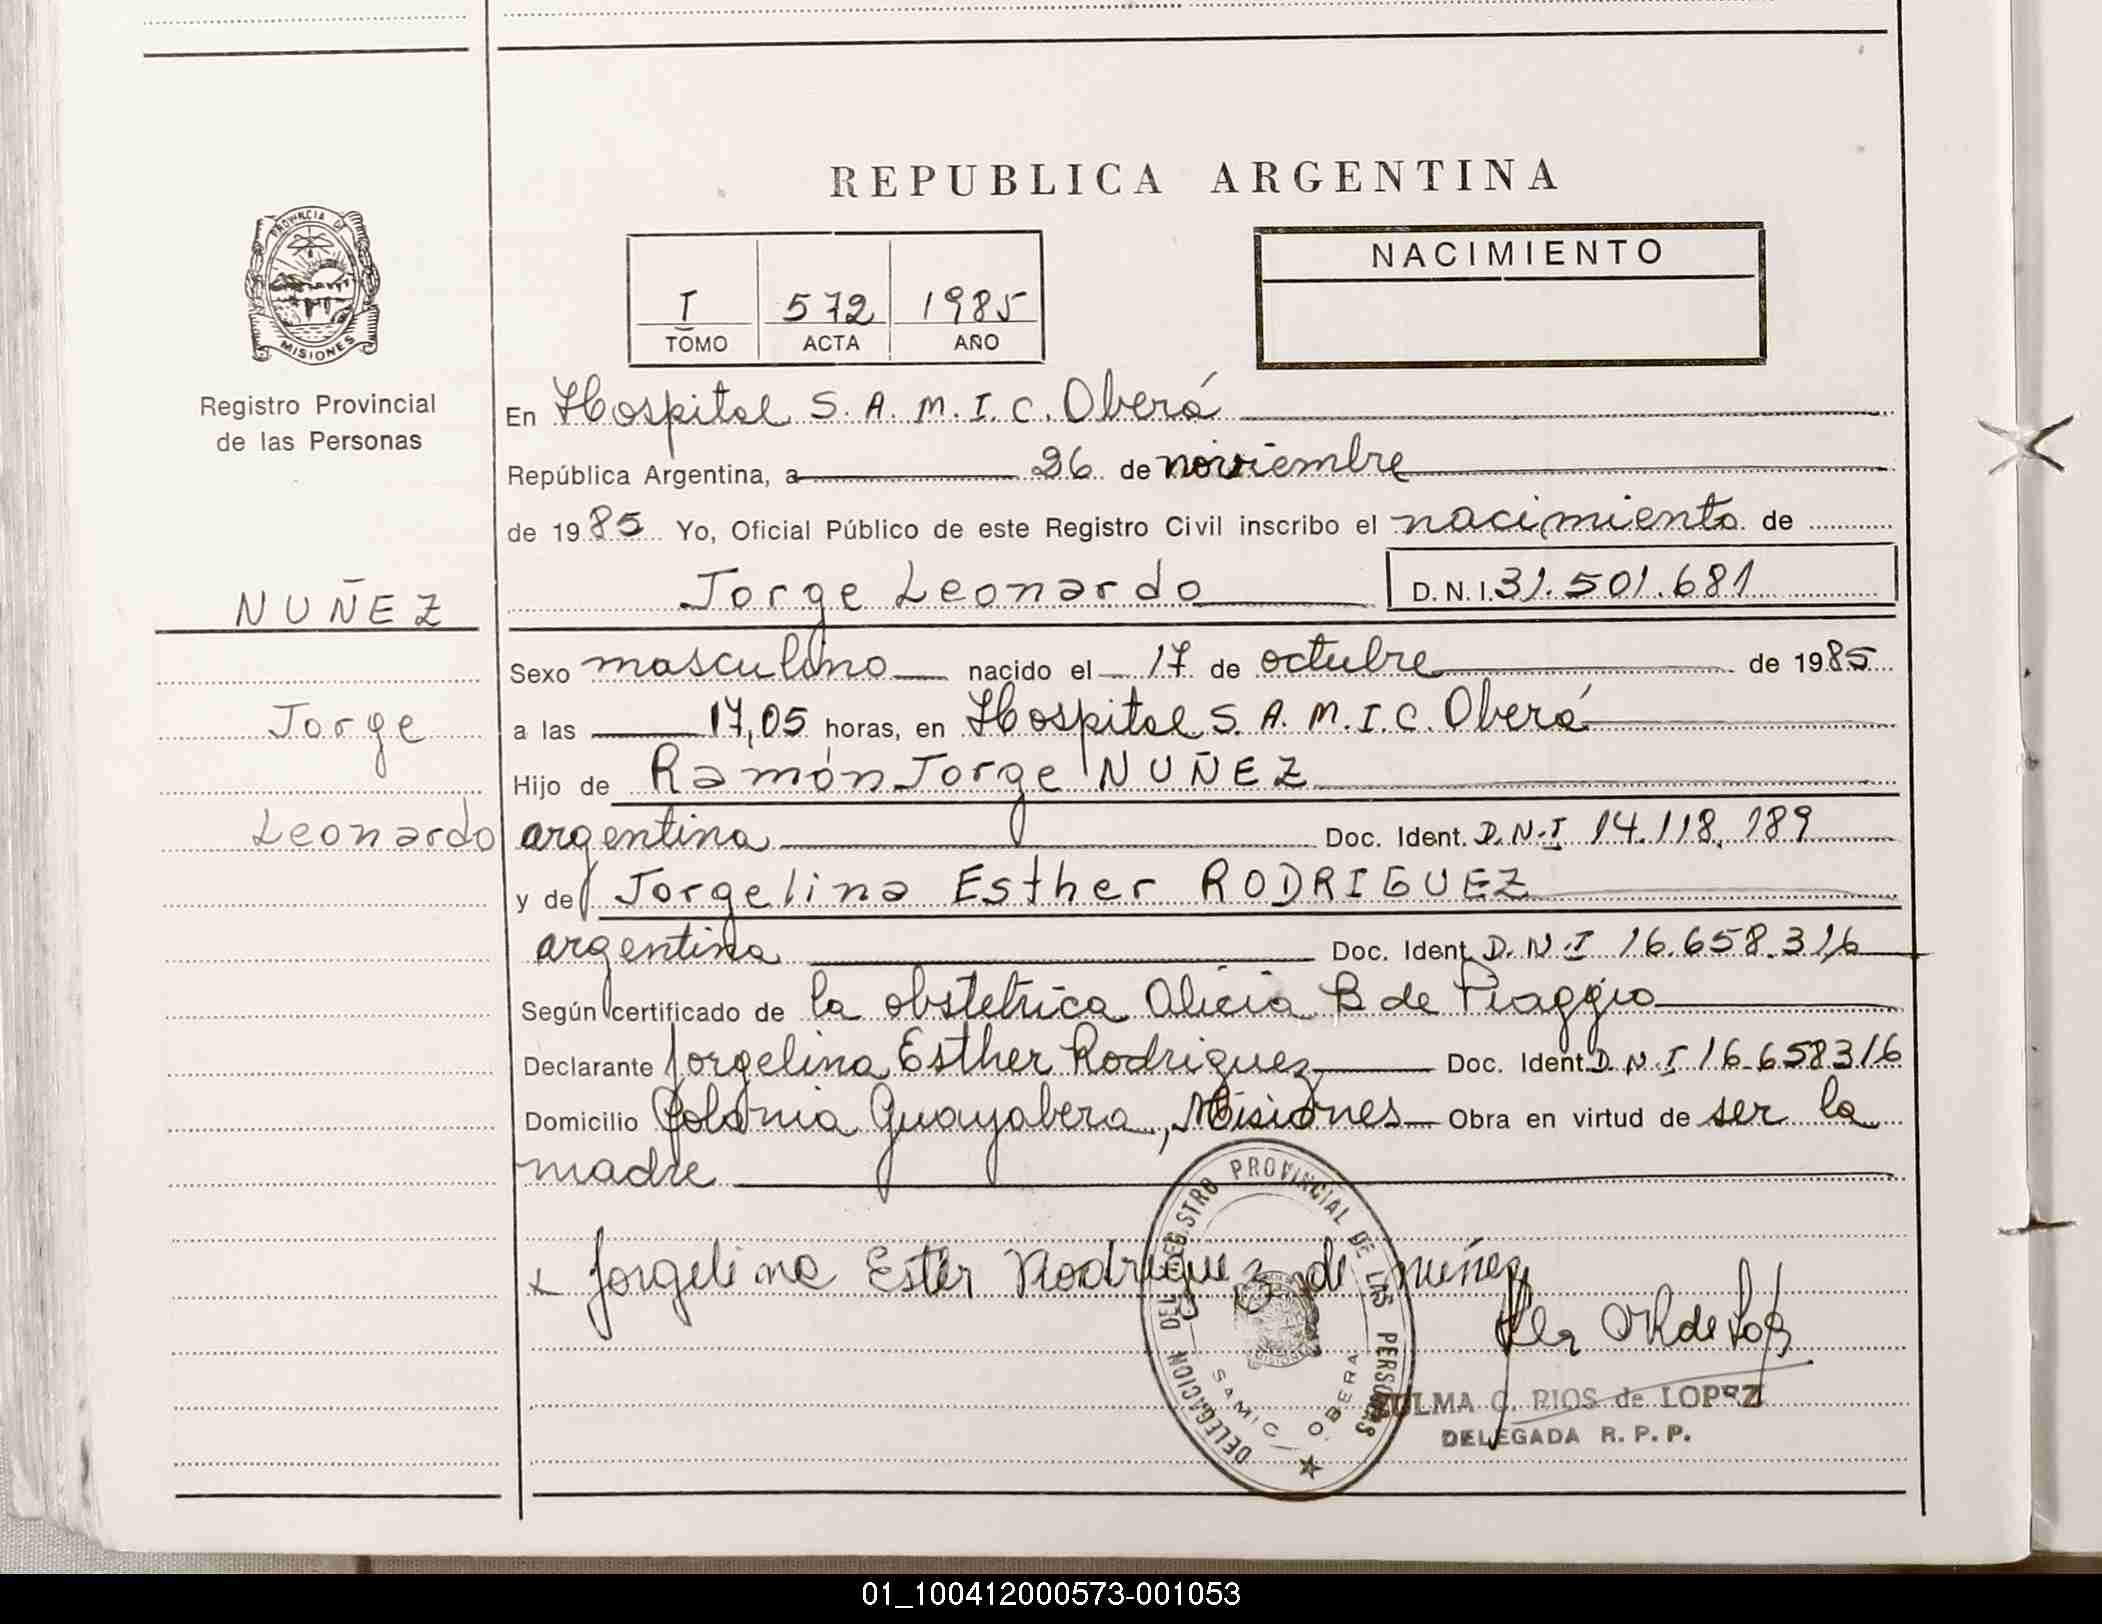 REPUBLICA ARGENTINA
PROVINCIA DE
MISIONES
Registro Provincial
de las Personas
I 572 1985
TOMO ACTA AÑO
NACIMIENTO
En Hospital S.A.M.I.C. Oberá
República Argentina, a 26 de noviembre
de 1985 Yo, Oficial Público de este Registro Civil inscribo el nacimiento de
Jorge Leonardo D.N.I. 31.501.681
NUÑEZ
Jorge
Leonardo
Sexo masculino nacido el 17 de octubre de 1985
a las 17,05 horas, en Hospital S.A.M.I.C. Oberá
Hijo de Ramón Jorge NUÑEZ
argentina Doc. Ident. D.N.I 14.118.189
y de Jorgelina Esther RODRIGUEZ
argentina Doc. Ident. D.N.I 16.658.316
Según certificado de la obstetrica Alicia B de Piaggio
Declarante Jorgelina Esther Rodriguez Doc. Ident. D.N.I 16.658316
Domicilio Colonia Guayabera, Misiones Obra en virtud de ser la
madre
x Jorgelina Ester Rodriguez de nuñez
DELEGACION DEL REGISTRO PROVINCIAL DE LAS PERSONAS
MISIONES
SAMIC OBERA
ZULMA C. RIOS de LOPEZ
DELEGADA R. P. P.
01_100412000573-001053